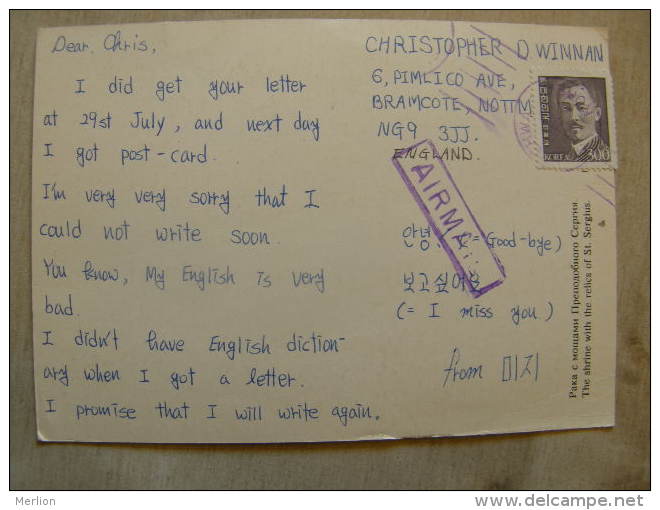 Dear. Chris,
I did get your letter
at 29st July, and next day
I got post-card.
I'm very very sorry that I
could not write soon.
You know, My English is very
bad.
I didn't have English diction-
ary when I got a letter.
I promise that I will write again.
CHRISTOPHER D WINNAN
6, PIMLICO AVE,
BRAMCOTE, NOTTM
NG9 3JJ.
ENGLAND.
KOREA 300
AIRMAIL
안녕 (=Good-bye)
보고싶어요
(= I miss you.)
from 미지
Рака с мощами Преподобного Сергия
The shrine with the relics of St. Sergius
Merlion
www.delcampe.net